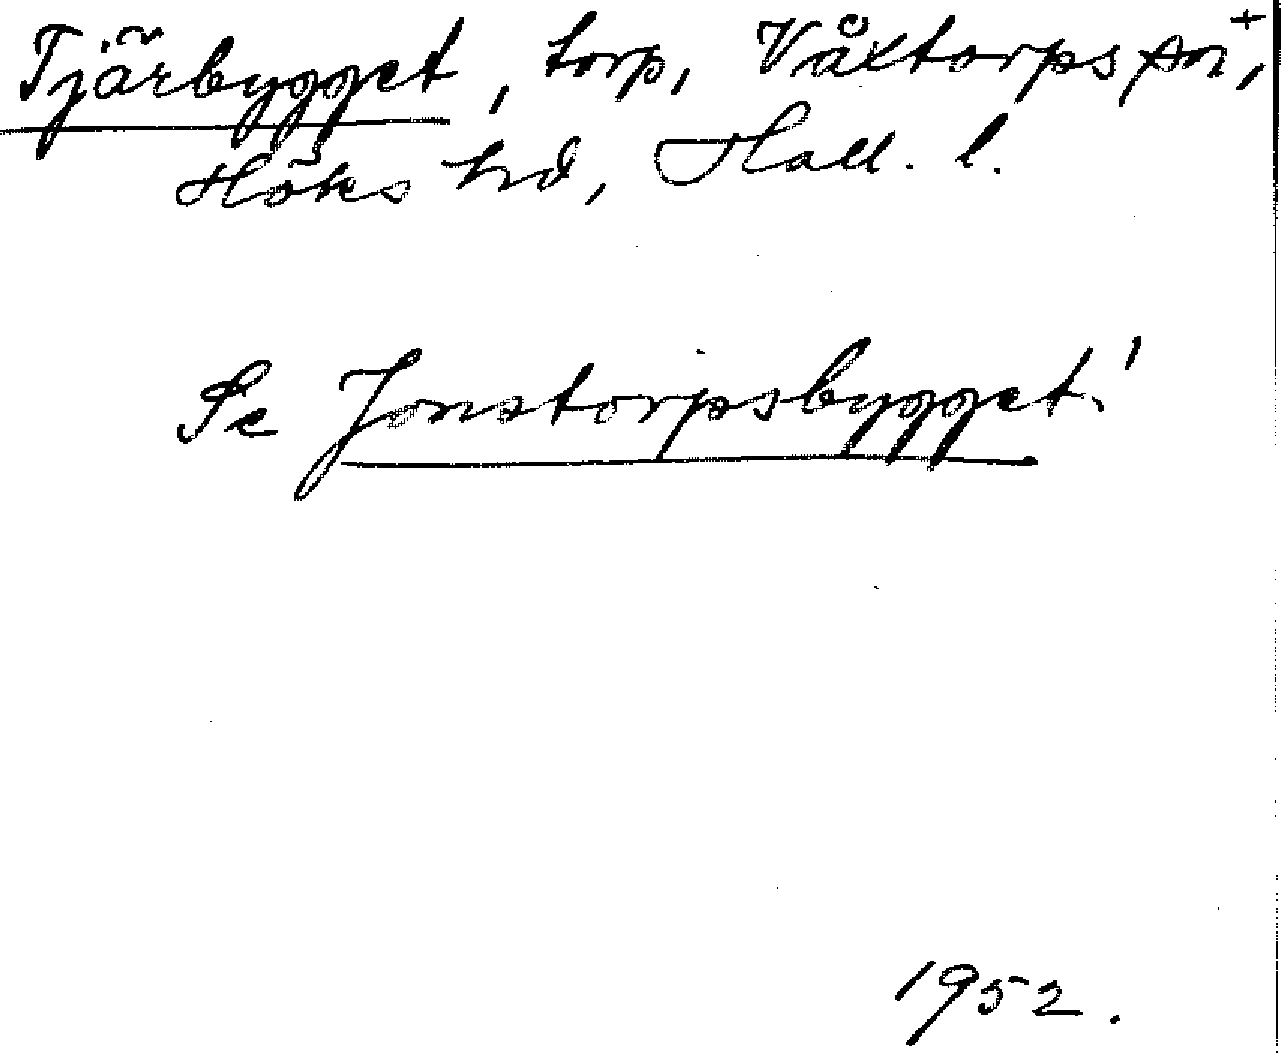 Tjärbygget, torp, Våxtorps sn,+
Höks hd, Hall. l.
Se Jonstorpsbygget!
1952.